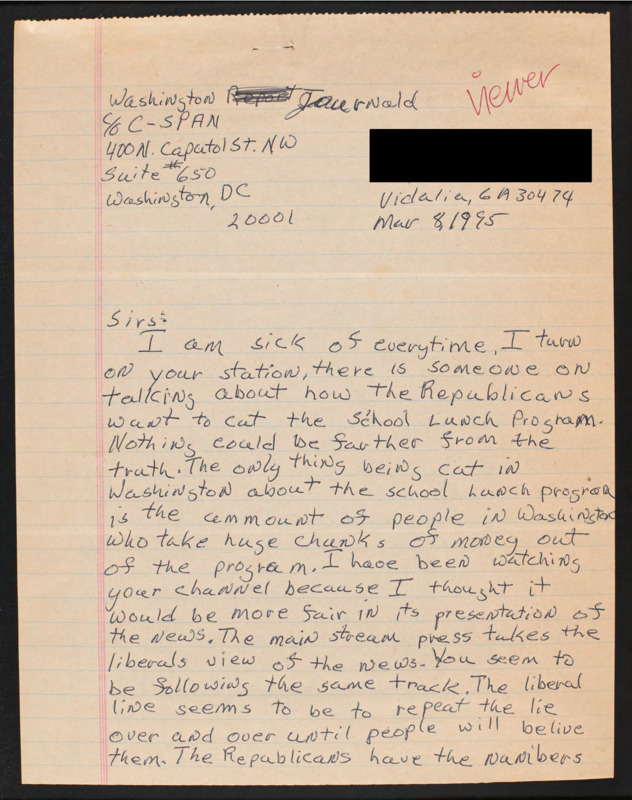 viewer
Washington Report Journald
c/o C-SPAN
400 N. Capatol St. NW
Suite #650
Washington, DC
20001
Vidalia, GA 30474
Mar 8, 1995
Sirs:
I am sick of everytime, I turn
on your station, there is someone on
talking about how the Republicans
want to cut the School Lunch Program.
Nothing could be farther from the
truth. The only thing being cut in
Washington about the school Lunch program
is the ammount of people in Washington
who take huge chunks of money out
of the program. I have been watching
your channel because I thought it
would be more fair in its presentation of
the news. The main stream press takes the
liberals view of the news. You seem to
be following the same track. The liberal
line seems to be to repeat the lie
over and over until people will belive
them. The Republicans have the numbers